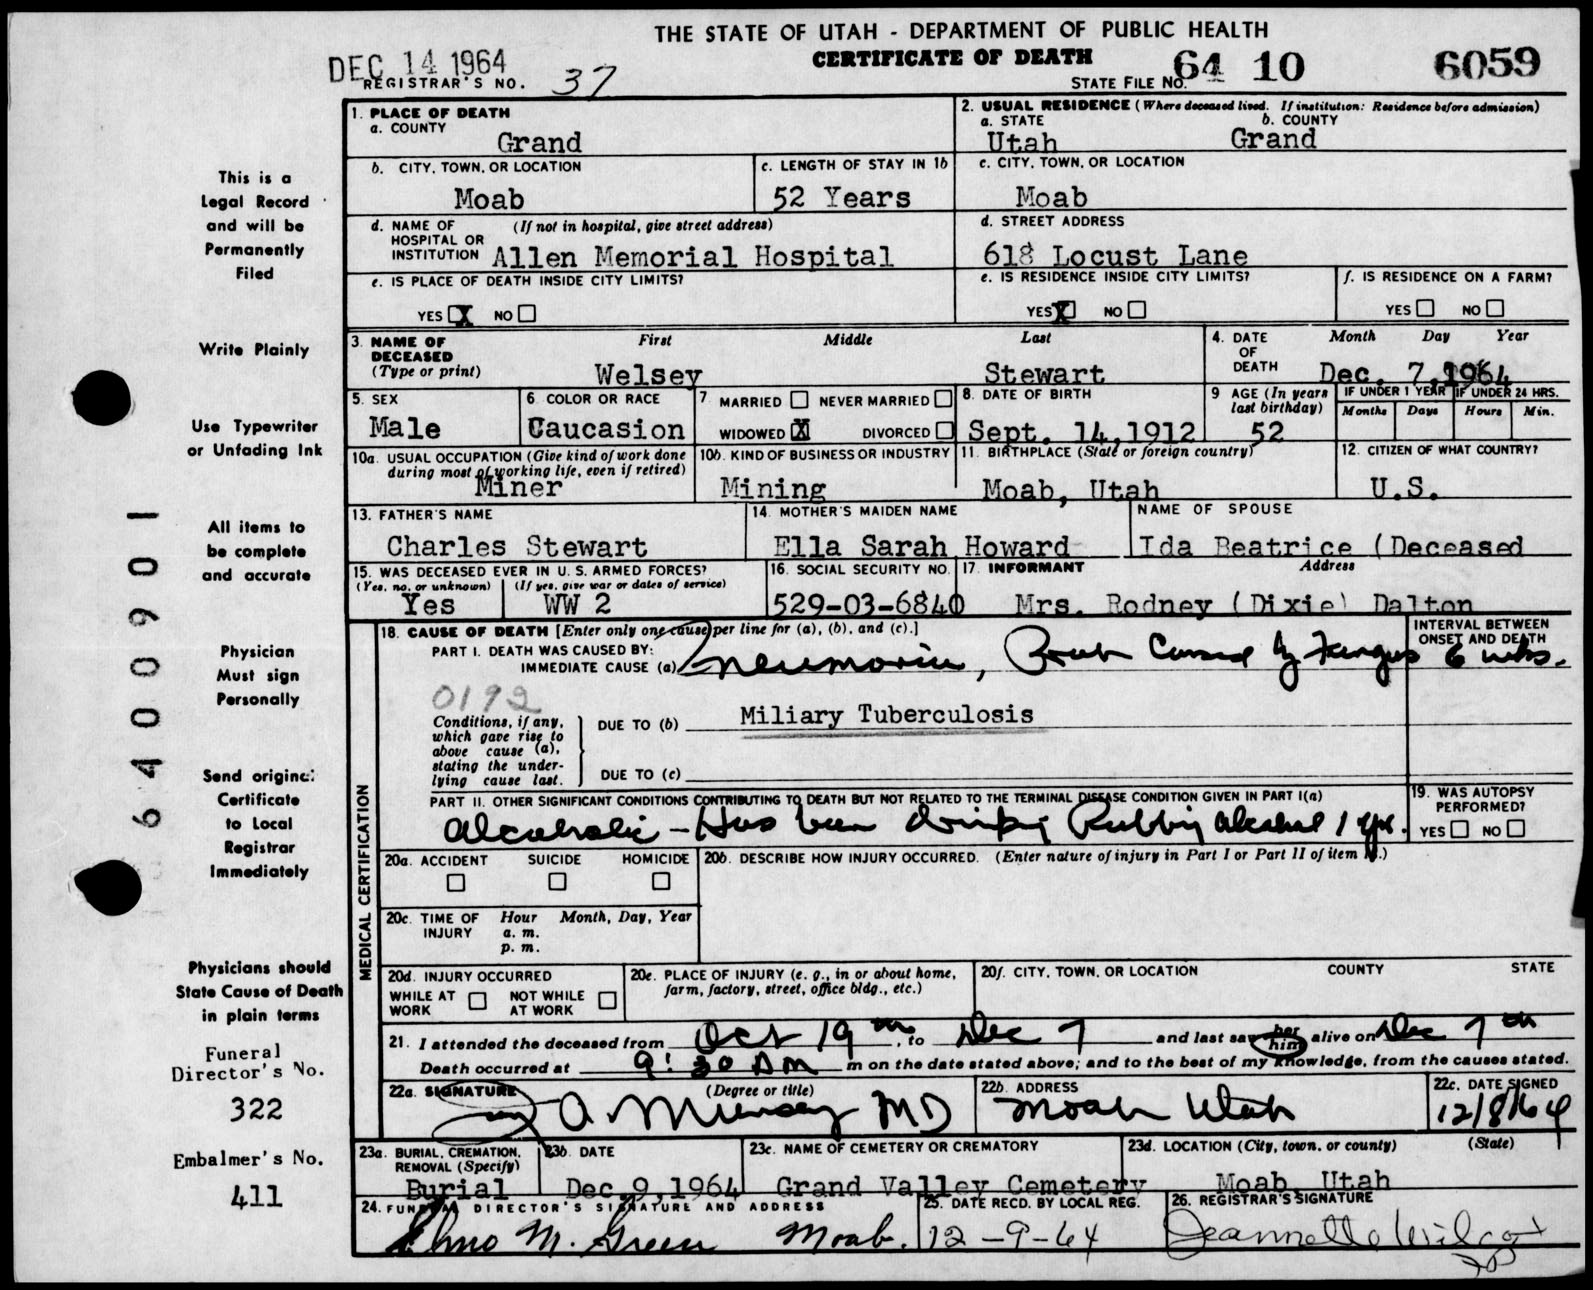 THE STATE OF UTAH - DEPARTMENT OF PUBLIC HEALTH
CERTIFICATE OF DEATH
DEC 14 1964
REGISTRAR'S NO. 37
STATE FILE NO. 64 10 6059
This is a
Legal Record
and will be
Permanently
Filed
Write Plainly
Use Typewriter
or Unfading Ink
All items to
be complete
and accurate
Physician
Must sign
Personally
Send original
Certificate
to Local
Registrar
Immediately
Physicians should
State Cause of Death
in plain terms
Funeral
Director's No.
322
Embalmer's No.
411
6400901
1. PLACE OF DEATH
a. COUNTY
Grand
2. USUAL RESIDENCE (Where deceased lived. If institution: Residence before admission)
a. STATE b. COUNTY
Utah Grand
b. CITY, TOWN, OR LOCATION
Moab
c. LENGTH OF STAY IN 1b
52 Years
c. CITY, TOWN, OR LOCATION
Moab
d. NAME OF (If not in hospital, give street address)
HOSPITAL OR
INSTITUTION Allen Memorial Hospital
d. STREET ADDRESS
618 Locust Lane
e. IS PLACE OF DEATH INSIDE CITY LIMITS?
YES X NO
e. IS RESIDENCE INSIDE CITY LIMITS?
YES X NO
f. IS RESIDENCE ON A FARM?
YES NO
3. NAME OF DECEASED
(Type or print)
First Middle Last
Welsey Stewart
4. DATE OF DEATH
Month Day Year
Dec. 7, 1964
5. SEX
Male
6. COLOR OR RACE
Caucasion
7. MARRIED NEVER MARRIED
WIDOWED X DIVORCED
8. DATE OF BIRTH
Sept. 14, 1912
9 AGE (In years
last birthday)
52
IF UNDER 1 YEAR IF UNDER 24 HRS.
Months Days Hours Min.
10a. USUAL OCCUPATION (Give kind of work done
during most of working life, even if retired)
Miner
10b. KIND OF BUSINESS OR INDUSTRY
Mining
11. BIRTHPLACE (State or foreign country)
Moab, Utah
12. CITIZEN OF WHAT COUNTRY?
U.S.
13. FATHER'S NAME
Charles Stewart
14. MOTHER'S MAIDEN NAME
Ella Sarah Howard
NAME OF SPOUSE
Ida Beatrice (Deceased
15. WAS DECEASED EVER IN U. S. ARMED FORCES?
(Yes, no, or unknown) (If yes, give war or dates of service)
Yes WW 2
16. SOCIAL SECURITY NO.
529-03-6840
17. INFORMANT Address
Mrs. Rodney (Dixie) Dalton
MEDICAL CERTIFICATION
18. CAUSE OF DEATH [Enter only one cause per line for (a), (b), and (c).]
PART I. DEATH WAS CAUSED BY:
IMMEDIATE CAUSE (a) Pneumonia, Prob Caused by Fungus
INTERVAL BETWEEN
ONSET AND DEATH
6 wks.
0192
Conditions, if any,
which gave rise to
above cause (a),
stating the under-
lying cause last.
DUE TO (b) Miliary Tuberculosis
DUE TO (c)
PART II. OTHER SIGNIFICANT CONDITIONS CONTRIBUTING TO DEATH BUT NOT RELATED TO THE TERMINAL DISEASE CONDITION GIVEN IN PART I(a)
Alcoholic - Has been drinking Rubbing Alcohol 1 yr.
19. WAS AUTOPSY
PERFORMED?
YES NO
20a. ACCIDENT SUICIDE HOMICIDE
20b. DESCRIBE HOW INJURY OCCURRED. (Enter nature of injury in Part I or Part II of item 18.)
20c. TIME OF INJURY
Hour Month, Day, Year
a. m.
p. m.
20d. INJURY OCCURRED
WHILE AT WORK NOT WHILE AT WORK
20e. PLACE OF INJURY (e. g., in or about home,
farm, factory, street, office bldg., etc.)
20f. CITY, TOWN, OR LOCATION COUNTY STATE
21. I attended the deceased from Oct 19th, to Dec 7 and last saw her him alive on Dec 7th
Death occurred at 9:30 AM m on the date stated above; and to the best of my knowledge, from the causes stated.
22a. SIGNATURE (Degree or title)
A. Munsey MD
22b. ADDRESS
Moab Utah
22c. DATE SIGNED
12/8/64
23a. BURIAL, CREMATION,
REMOVAL (Specify)
Burial
23b. DATE
Dec. 9, 1964
23c. NAME OF CEMETERY OR CREMATORY
Grand Valley Cemetery
23d. LOCATION (City, town, or county) (State)
Moab, Utah
24. FUNERAL DIRECTOR'S SIGNATURE AND ADDRESS
Elmo M. Green Moab.
25. DATE RECD. BY LOCAL REG.
12-9-64
26. REGISTRAR'S SIGNATURE
Jeannette Wilcox